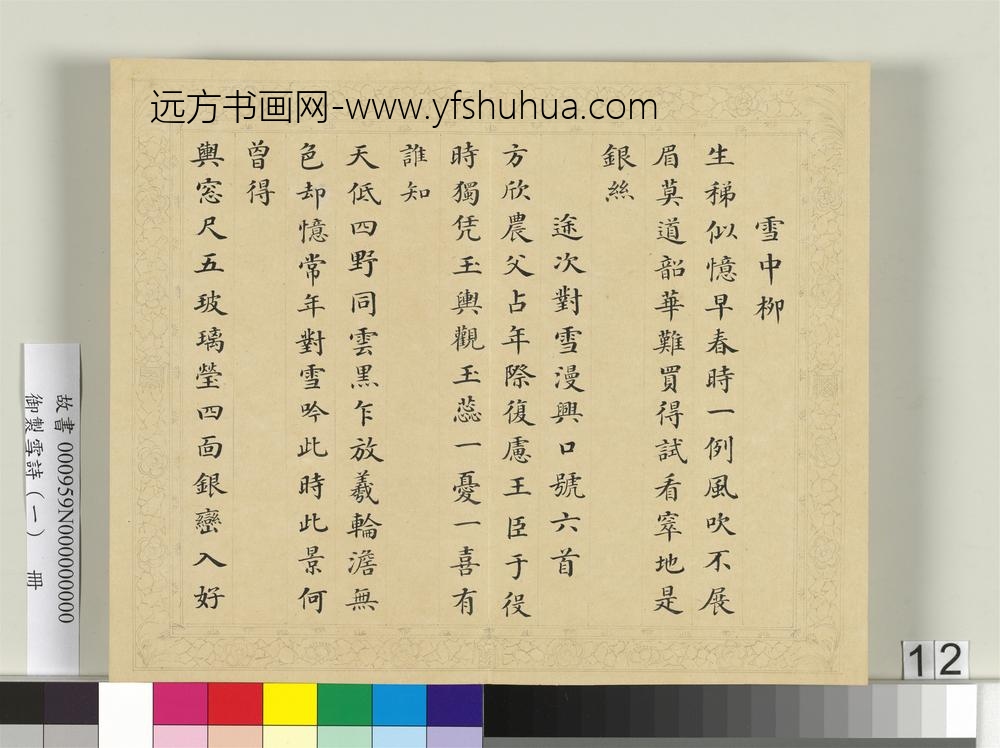 远方书画网-www.yfshuhua.com
雪中柳
生稊似憶早春時一例風吹不展
眉莫道韶華難買得試看窣地是
銀絲
途次對雪漫興口號六首
方欣農父占年際復慮王臣于役
時獨凭玉輿觀玉蕊一憂一喜有
誰知
天低四野同雲黑乍放羲輪澹無
色却憶常年對雪吟此時此景何
曾得
輿窓尺五玻璃瑩四面銀巒入好
故書 000959N000000000
御製雪詩（一） 冊
12